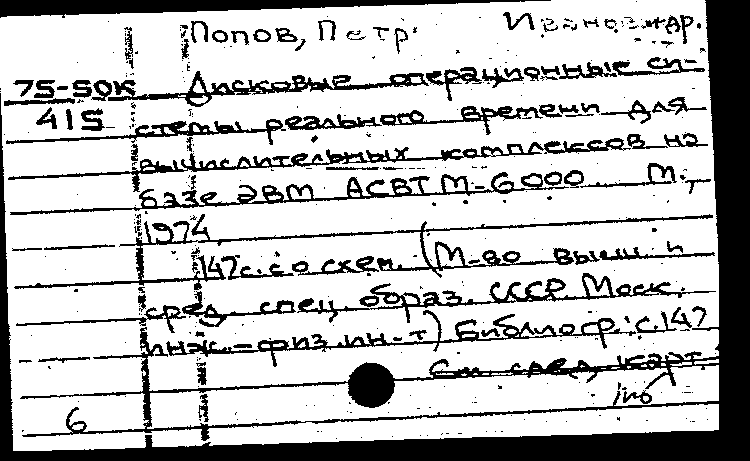 Попов, Петр Иванович др.
75-50к Дисковые операционные си-
415 стемы реального времени для
вычислительных комплексов на
базе ЭВМ АСВТ М-6000. М.,
1974.
147с. со схем. (М-во высш. и
сред. спец. образ. СССР. Моск.
инж.-физ. ин-т) Библиогр.: с.147
См. след. карт.
6